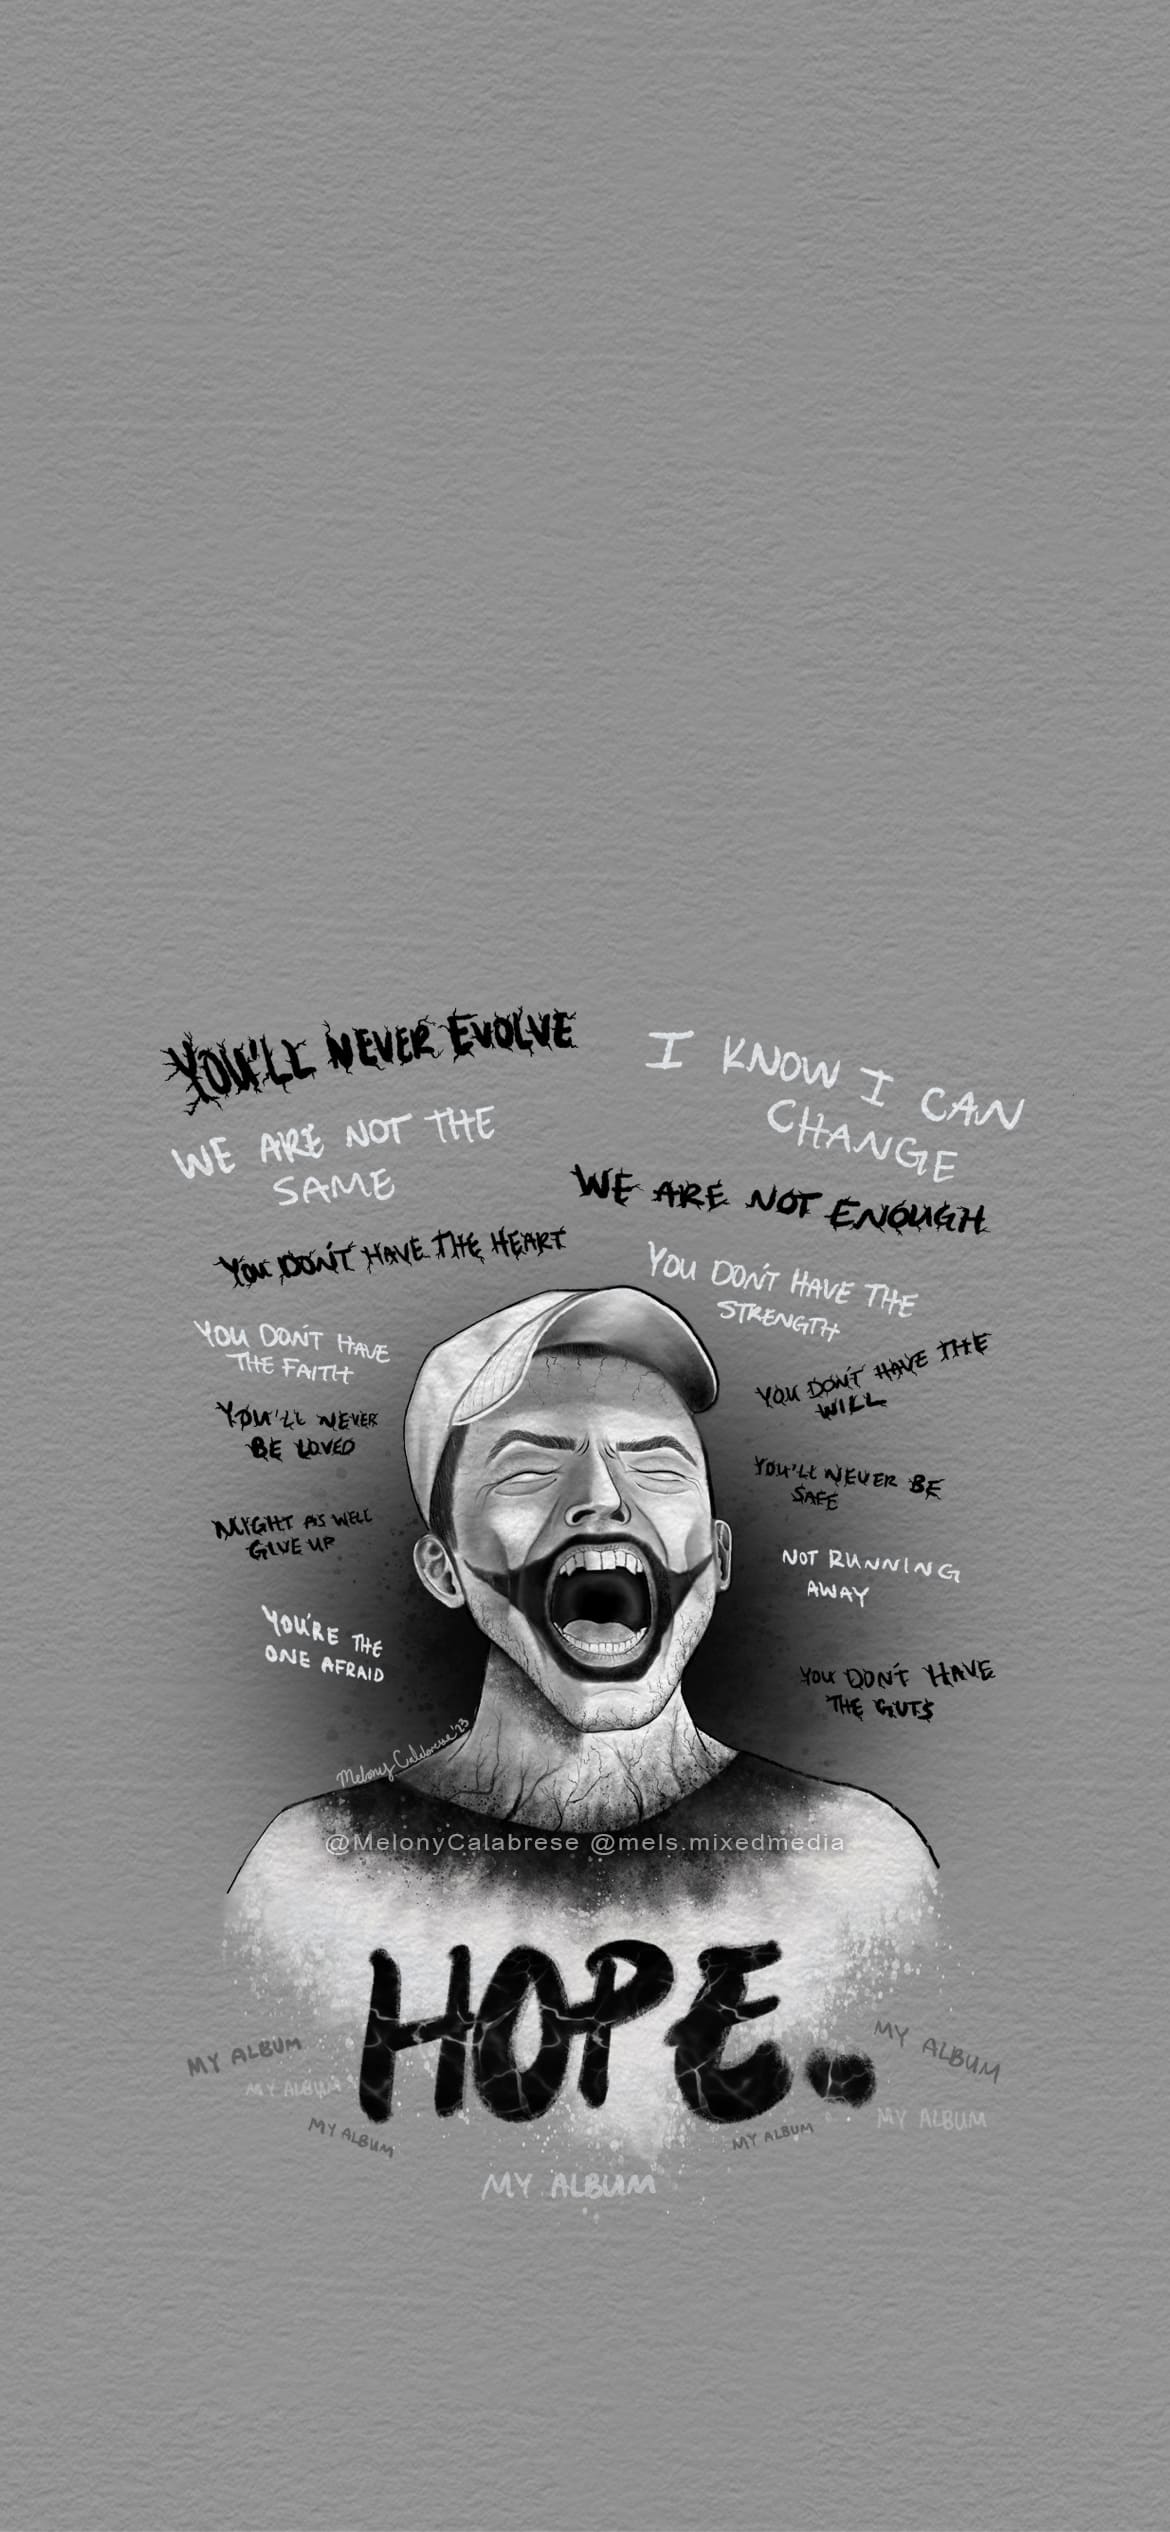 YOU'LL NEVER EVOLVE
I KNOW I CAN
CHANGE
WE ARE NOT THE
SAME
WE ARE NOT ENOUGH
YOU DON'T HAVE THE HEART
YOU DON'T HAVE THE
STRENGTH
YOU DON'T HAVE
THE FAITH
YOU DON'T HAVE THE
WILL
YOU'LL NEVER
BE LOVED
YOU'LL NEVER BE
SAFE
MIGHT AS WELL
GIVE UP
NOT RUNNING
AWAY
YOU'RE THE
ONE AFRAID
YOU DON'T HAVE
THE GUTS
Melony Calabrese '23
@MelonyCalabrese @mels.mixedmedia
HOPE..
MY ALBUM
MY ALBUM
MY ALBUM
MY ALBUM
MY ALBUM
MY ALBUM
MY ALBUM